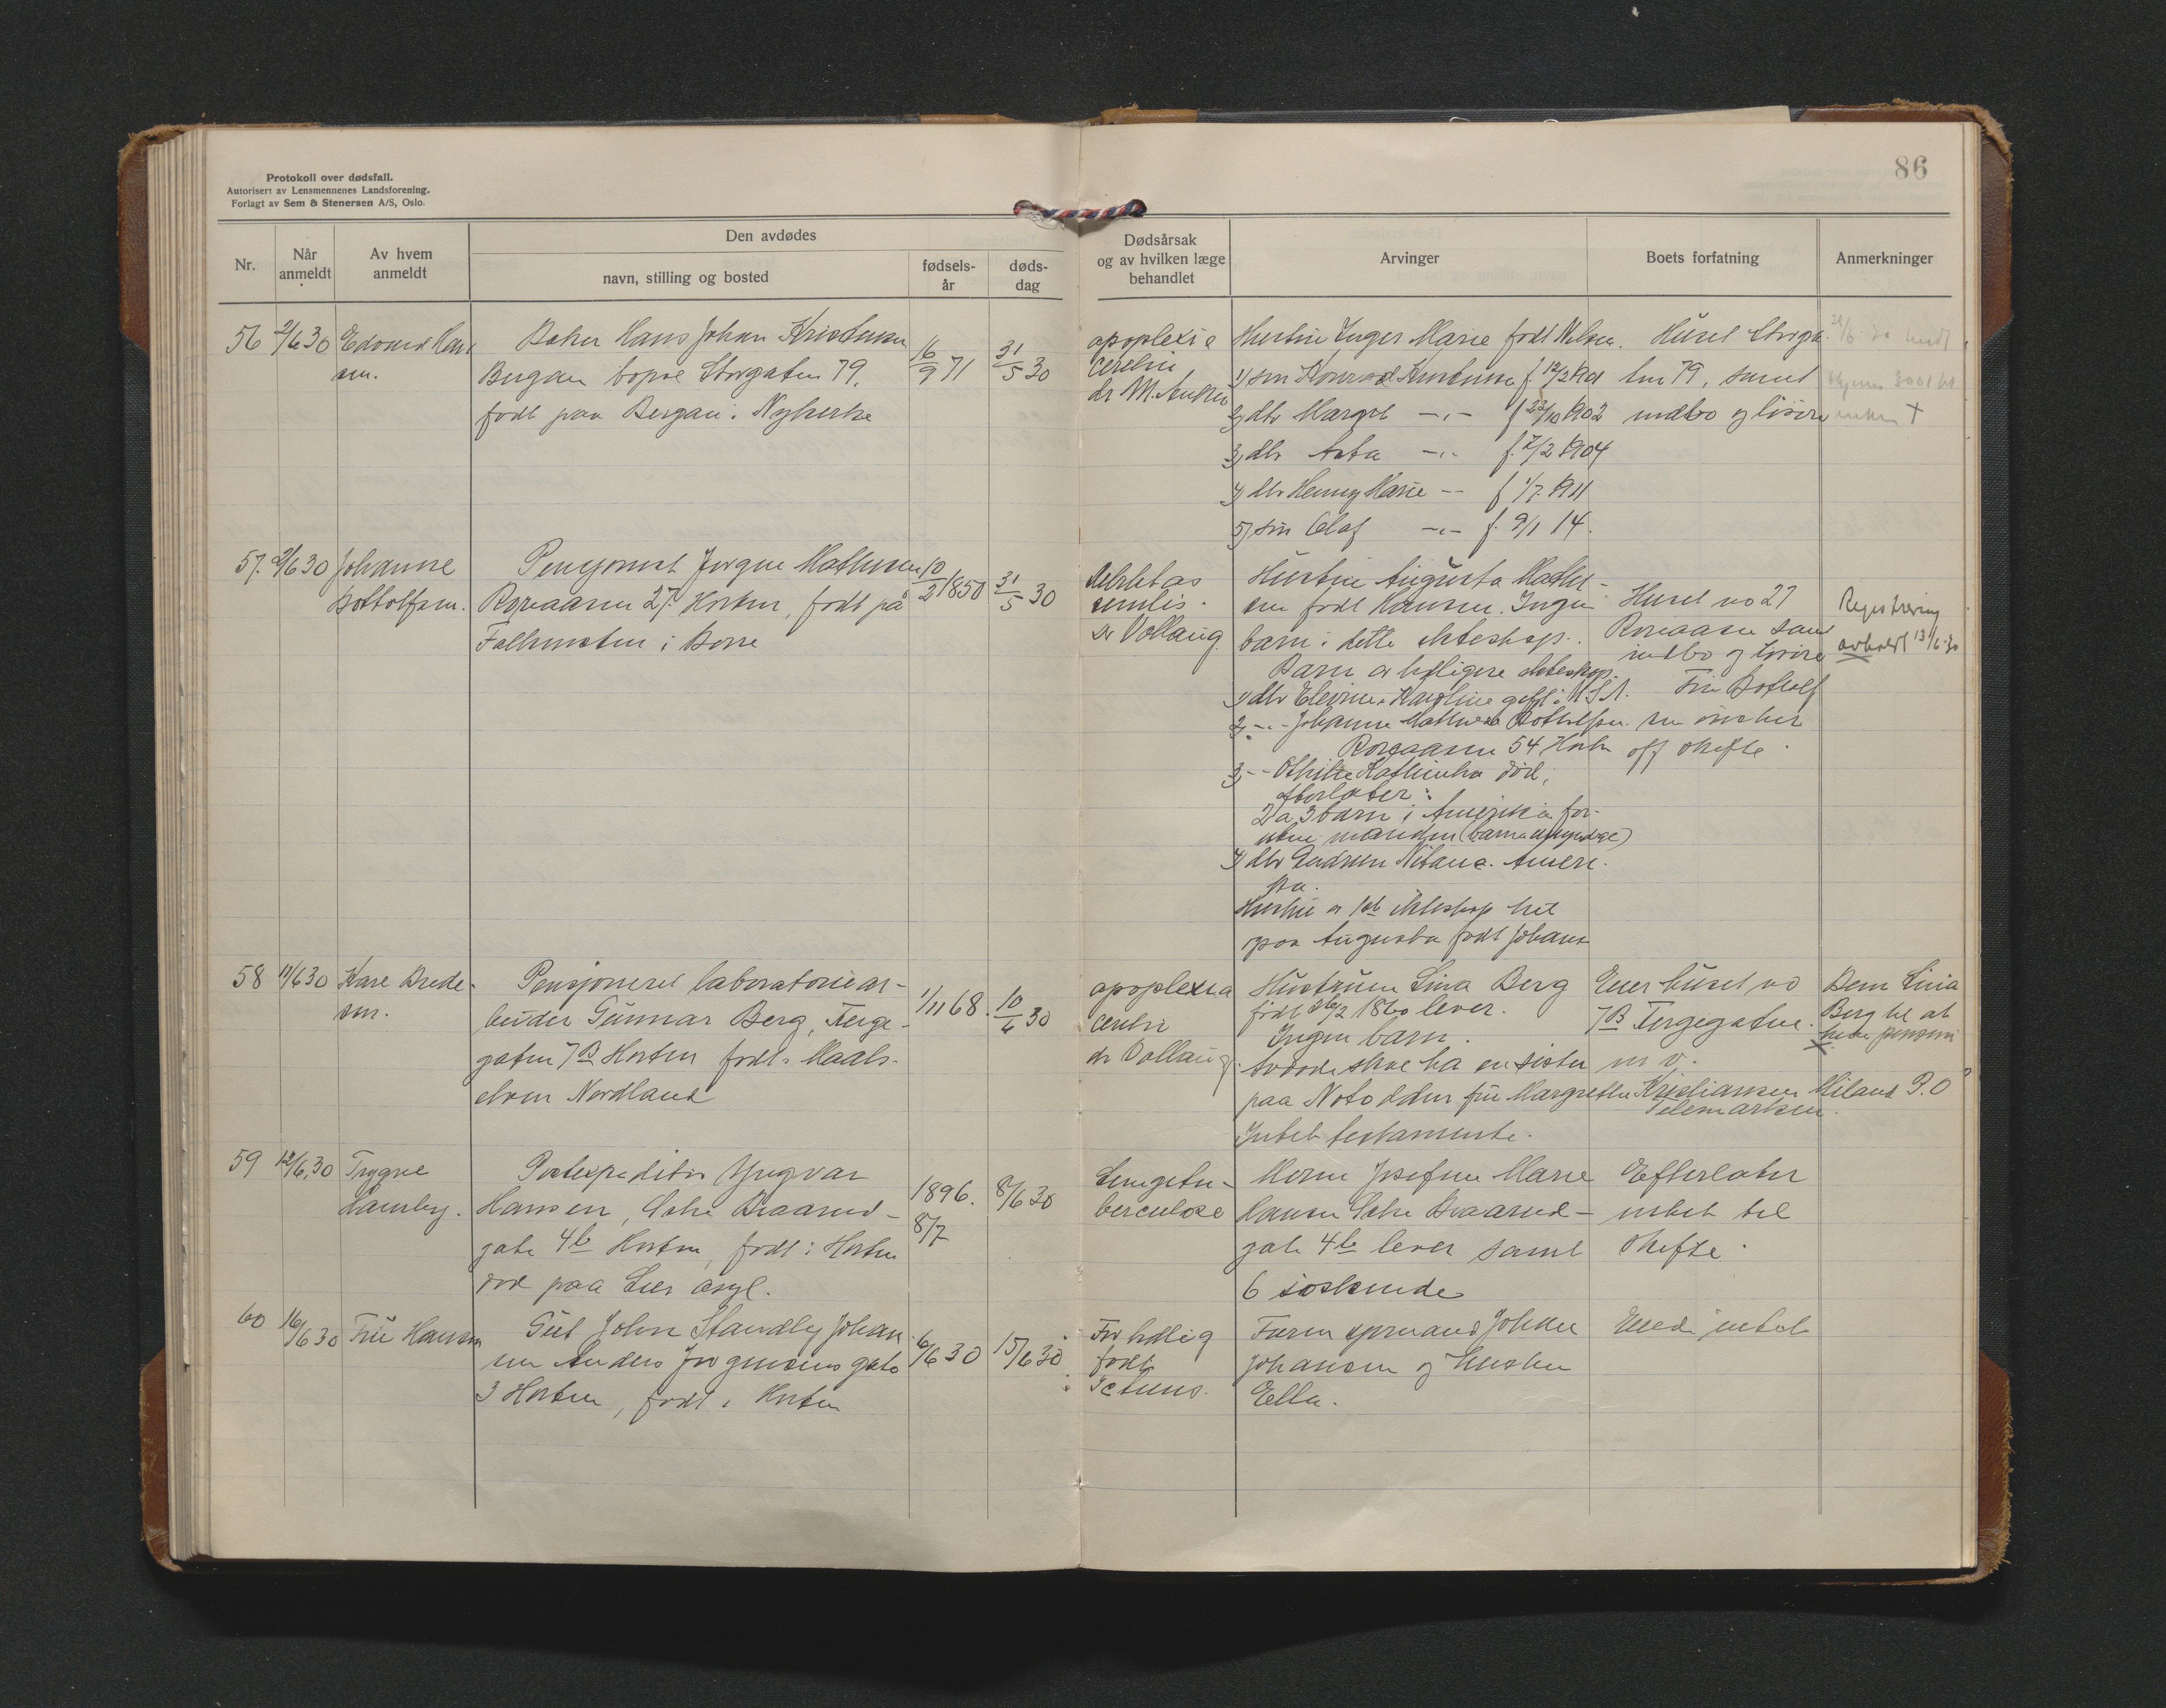 86
Protokoll over dødsfall.
Autorisert av Lensmennenes Landsforening.
Forlagt av Sem & Stenersen A/S, Oslo.
Nr.
Når anmeldt
Av hvem anmeldt
Den avdødes
navn, stilling og bosted
fødsels-
år
døds-
dag
Dødsårsak
og av hvilken læge
behandlet
Arvinger
Boets forfatning
Anmerkninger
56 2/6 30 Edvard Han
sen.
Baker Hans Johan Kristensen
Bergan bopæl Storgaten 79,
født paa Bergan i Nykirke
16/9 71
31/5 30
apoplexia
cerebri
dr M. Anker
Hustru Inger Marie født Nilsen.
1) søn Konrad Kristensen f. 12/2 1901
2) dtr Margit -"- f 23/10 1902
3) dtr Asta -"- f. 7/2 1904
4) dtr Henny Marie -- f 1/7 1911
5) søn Olaf -"- f. 9/1 14.
Huset Storga-
ten 79, samt
indbo og løsøre
57. 2/6 30 Johanne
Bottolfsen.
Pensjonist Jørgen Mathisen
Roreaasen 27 Horten, født på
Falkensten i Borre
10/2 1850
31/5 30
debilitas
senilis.
Dr Vollaug.
Hustru Augusta Mathi-
sen født Hansen. Ingen
barn i dette ekteskap.
Barn av tidligere ekteskap.
1) dtr Karoline gift i U.S.A.
2) -"- Johanne Bottolfsen.
Roreaasen 54 Horten
3) -- død,
efterlater:
2 a 3 barn i Amerika for-
uten manden (barna umyndige)
4) dtr Ameri-
ka.
Hustru av 1ste ekteskap het
Augusta født Johans
Huset no 27
Roreaasen samt
indbo og løsøre
Fru Bottolf
sen ønsker
off skifte.
Registrering
avholdt 13/6 30
58 11/6 30 Kare Brede-
sen.
Pensjonert laboratoriear-
beider Gunnar Berg, Ferge-
gaten 7B Horten født i Maals-
elven Nordland
1/11 68.
10/6 30
apoplexia
cerebri
dr Vollaug.
Hustruen Lina Berg
født 26/2 1860 lever.
Ingen barn.
Avdøde skal ha en sister
paa Notodden fru Margrethe Kristiansen Miland P.O
Telemarken.
Intet testamente.
Eier huset no
7B Fergegaten.
m v.
Bem Lina
Berg til at
søke pension
59 12/6 30 Trygve
Lamberg.
Postexpeditør Yngvar
Hansen, Baarud-
gate 4b Horten, født i Horten
død paa Lier asyl.
1896.
8/7
8/6 30
Lungetu-
berculose
Moren Josefine Marie
Hansen Baarud-
gate 4b lever samt
6 søskende
Efterlater
intet til
skifte.
60 16/6 30 Fru Hansen
Gut John Standley Johan
sen Anders Jørgensens gate
3 Horten, født i Horten
6/6 30
15/6 30
For tidlig
født
Icterus.
Faren Johan
Johansen og hustru
Ella.
Eiede intet